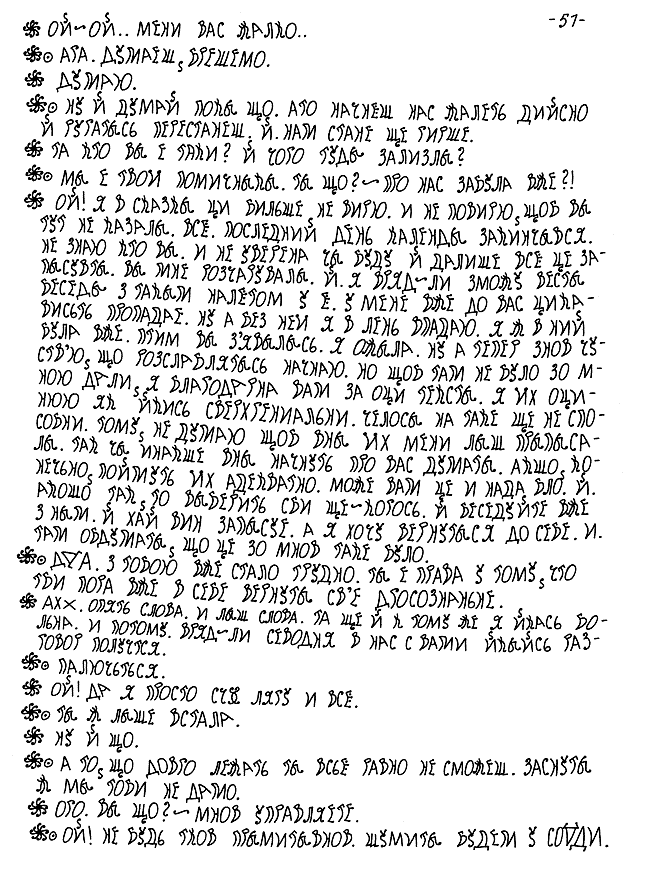 -51-
ОЙ~ОЙ.. МЕНИ ВАС ЖАЛКО..
АГА. ДУМАЕШ, БРЕШЕМО.
ДУМАЮ.
НУ Й ДУМАЙ ПОКЫ ЩО. АТО НАЧНЕШ НАС ЖАЛЕТЬ ДИЙСНО
Й РУГАТЫСЬ ПЕРЕСТАНЕШ. Й. НАМ СТАНЕ ЩЕ ГИРШЕ.
ТА КТО ВЫ Е ТАКИ? Й ЧОГО ТУДЫ ЗАЛИЗЛЫ?
МЫ Е ТВОИ ПОМИЧНЫКЫ. ТЫ ЩО?~ПРО НАС ЗАБУЛА ВЖЕ?!
ОЙ! Я В СКАЗКЫ ЦИ БИЛЬШЕ, НЕ ВИРЮ. И НЕ ПОВИРЮ, ЩОБ ВЫ
ТУТ НЕ КАЗАЛЫ. ВСЕ. ПОСЛЕДНИЙ ДЕНЬ КАЛЕНДЫ ЗАКИНЧЫВСЯ.
НЕ ЗНАЮ КТО ВЫ. И НЕ УВЕРЕНА ЧЫ БУДУ Й ДАЛИШЕ ВСЕ ЦЕ ЗА-
ПЫСУВТЫ. ВЫ МНЕ РОЗЧАРУВАЛЫ. Й. Я ВРЯД~ЛИ ЗМОЖУ ВЕСТЫ
БЕСЕДЫ З ТАКЫМ НАЛЕТОМ У Е. У МЕНЕ ВЖЕ ДО ВАС ЦИКА-
ВИСЬТЬ ПРОПАДАЕ. НУ А БЕЗ НЕИ Я В ЛЕНЬ ВПАДАЮ. Я Ж В НИЙ
БУЛА ВЖЕ. ПТИМ ВЫ ЗЯВЫЛЫСЬ. Я ОЖЫЛА. НУ А ТЕПЕР ЗНОВ ЧУ-
СТВ'Ю, ЩО РОЗСЛАБЛЯТЫСЬ НАЧНАЮ. НО ЩОБ ТАМ НЕ БУЛО ЗО М-
НОЮ ДАЛИ, Я БЛАГОДАРНА ВАМ ЗА ОЦИ ТЕКСТЫ. Я ИХ ОЦИ-
НЮЮ ЯК ЙКИСЬ СВЕРХГЕНИАЛЬНИ. ЧЕЛОСЫ НА ТАКЕ ЩЕ НЕ СПО-
СОБНИ. ТОМУ, НЕ ДУМАЮ ЩОБ ВНЫ ИХ МЕНИ ЛЫШ ПРЫПЫСА-
ЛЫ. ТАК ЧЫ ИНАКШЕ ВНЫ НАЧНУТЬ ПРО ВАС ДУМАТЫ. АКЩО, КО-
НЕЧЬНО, ПОЙМУТЬ ИХ АДЕКВАТНО. МОЖЕ ВАМ ЦЕ И НАДА БЛО. Й.
АКОШО ТАК, ТО ВЫБЕРИТЬ СБИ ЩЕ~КОГОСЬ. Й БЕСЕДУЙТЕ ВЖЕ
З НЫМ. Й ХАЙ ВИН ЗАПЫСУЕ. А Я ХОЧУ ВЕРНУТЫСЯ ДО СЕБЕ. И.
ТАМ ОБДУМАТЫ, ЩО ЦЕ ЗО МНОВ ТАКЕ БУЛО.
ДАА. З ТОБОЮ ВЖЕ СТАЛО ТРУДНО. ТЫ Е ПРАВА У ТОМУ, ЧТО
ТБИ ПОРА ВЖЕ В СЕБЕ ВЕРНУТЫ СВ'Е АГОСОЗНАНЬНЕ.
АХХ. ОПЯТЬ СЛОВА. И ЛЫШ СЛОВА. ТА ЩЕ Й К ТОМУ ЖЕ Я ЙКАСЬ БО-
ЛЬНА. И ПОТОМУ. ВРЯД~ЛИ СЕВОДНЯ В НАС С ВАМИ ЙКЫЙСЬ РАЗ-
ГОВОР ПОЛУЧТСЯ.
ПАЛЮЧЬТЬСЯ.
ОЙ! ДА Я ПРОСТО СЧАС ЛЯГУ И ВСЕ.
ТЫ Ж ЛЫШЕ ВСТАЛА.
НУ Й ЩО.
А ТО, ЩО ДОВГО ЛЕЖАТЬ ТЫ ВСЬЕ РАВНО НЕ СМОЖЕШ. ЗАСНУТЫ
Ж МЫ ТОБИ НЕ ДАМО.
ОГО. ВЫ ЩО?~МНОВ УПРАВЛЯЕТЕ.
ОЙ! НЕ БУДЬ ТКОВ ПРЫМИТЫВНОВ. ШУМИТЫ БУДЕМ У СОУДИ.